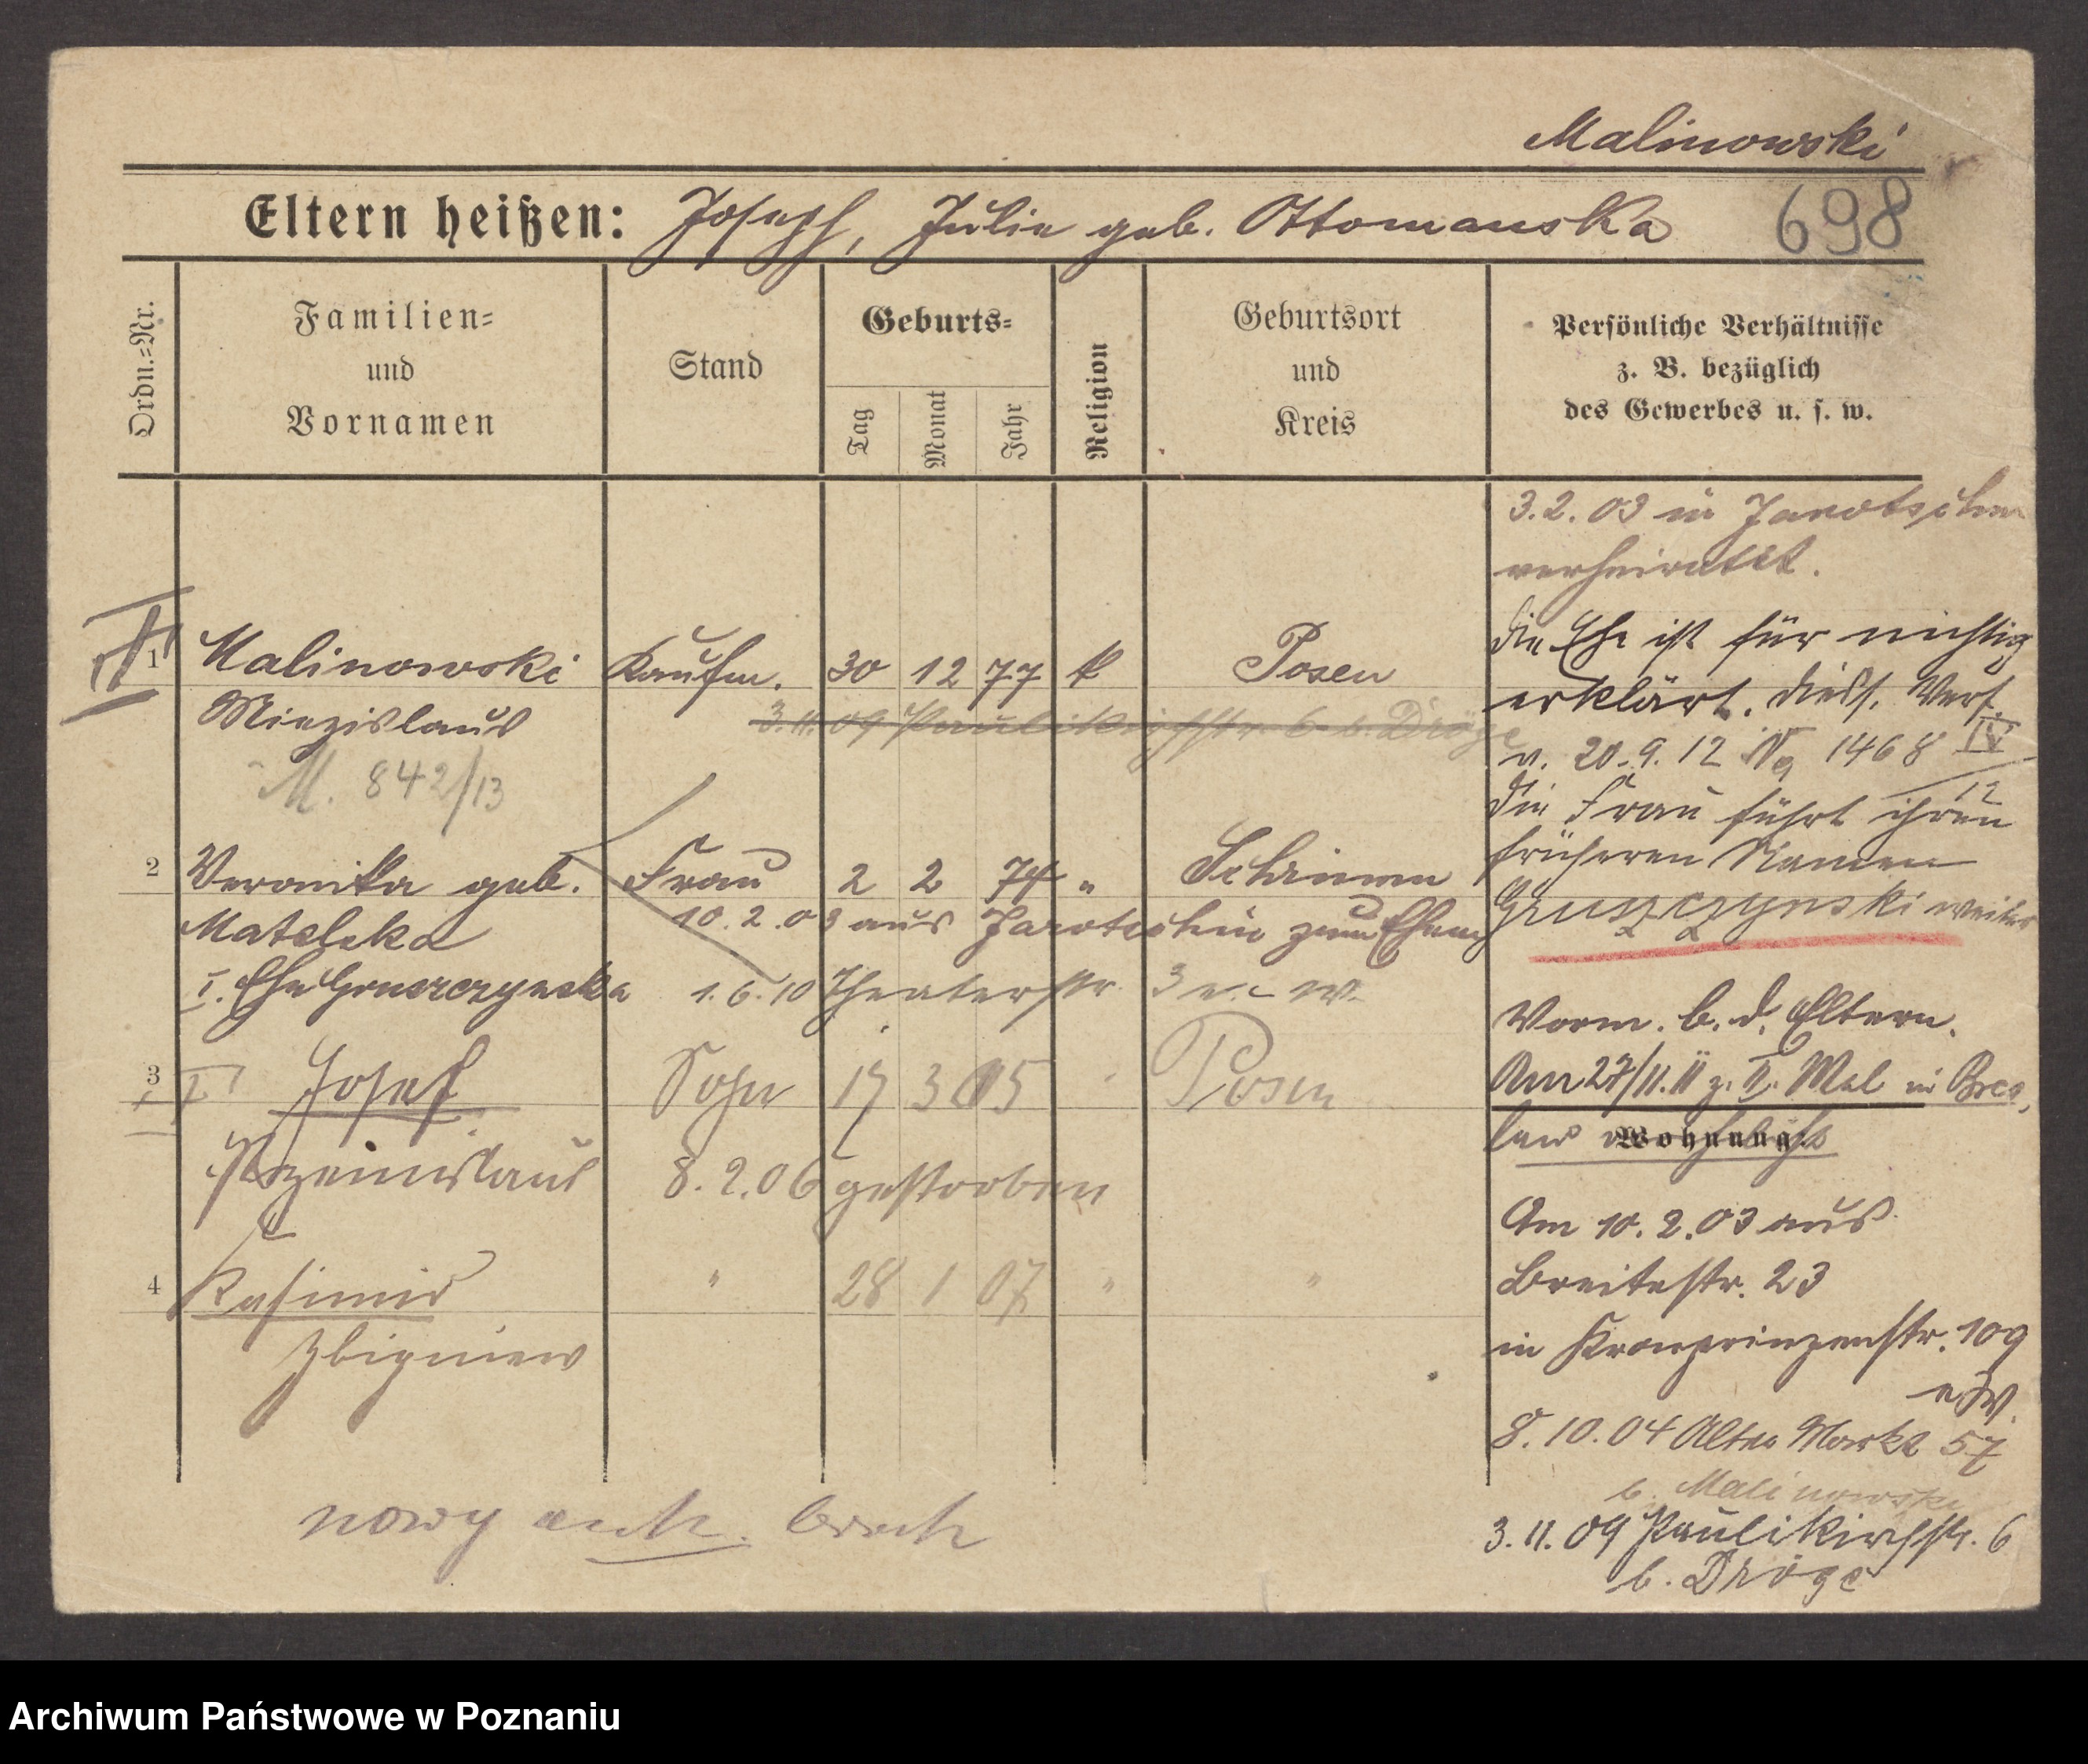 Malinowski
Eltern heißen: Joseph, Julie geb. Ottomanska
698
Ordn.=Nr.
Familien=
und
Vornamen
Stand
Geburts=
Tag
Monat
Jahr
Religion
Geburtsort
und
Kreis
Persönliche Verhältnisse
z. B. bezüglich
des Gewerbes u. s. w.
3.2.03 in Jarotschin
verheiratet.
1 Malinowski Kaufm. 30 12 77 k Posen
Miezislaus
3.11.09 Paulikirchstr. 6 b. Dröge
M. 842/13
die Ehe ist für nichtig
erklärt. dies. Verf.
v. 20.9.12 No 1468 IV/12
Die Frau führt ihren
früheren Namen
Gruszczynski weiter
2 Veronika geb. Frau 2 2 74 " Schrimm
Mateleka 10.2.03 aus Jarotschin zum Ehem
I. Ehe Gruszczynska 1.6.10 Theaterstr. 3
Vorm. b. d. Eltern.
3 I Josef Sohn 17 3 05 Posen
Am 27/11.11 z. II. Mal in Bres
lau
Przemislaus 8.2.06 gestorben
Wohnung
Am 10.2.03 aus
4 Kasimir " 28 1 07 " "
Breitestr. 23
Zbigniew
in Kronprinzenstr. 109
8.10.04 Alter Markt 57
b. Malinowski
nowy
3.11.09 Paulikirchstr. 6
b. Dröge
Archiwum Państwowe w Poznaniu